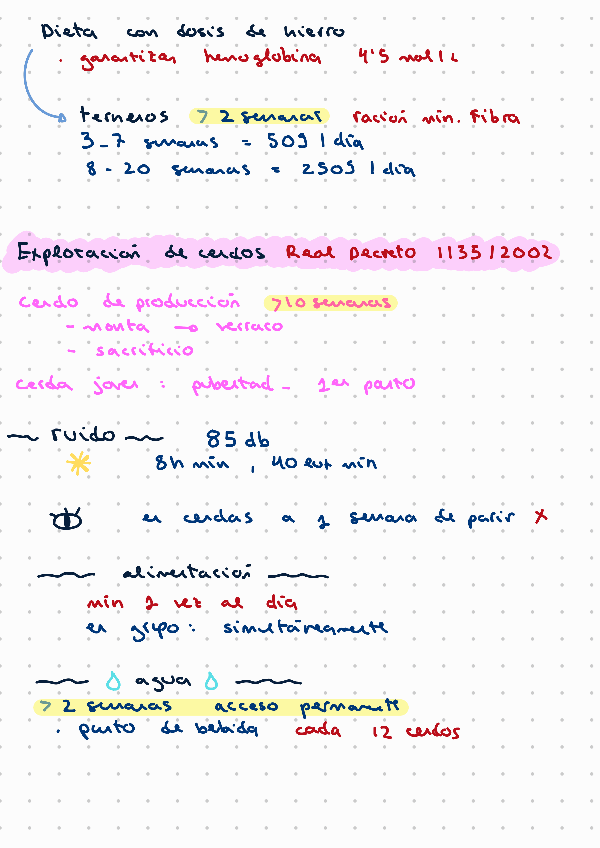 Dieta con dosis de hierro
· garantizar hemoglobina 4'5 mmol/L
terneros > 2 semanas ración mín. Fibra
3-7 semanas = 50g / día
8-20 semanas = 250g / día
Explotación de cerdos Real Decreto 1135/2002
Cerdo de producción >10 semanas
- monta → verraco
- sacrificio
cerda joven : pubertad - 1er parto
~ ruido ~ 85 db
8h min , 40 lux min
en cerdas a 1 semana de parir X
alimentación
min 1 vez al día
en grupo: simultáneamente
agua
> 2 semanas acceso permanente
· punto de bebida cada 12 cerdos